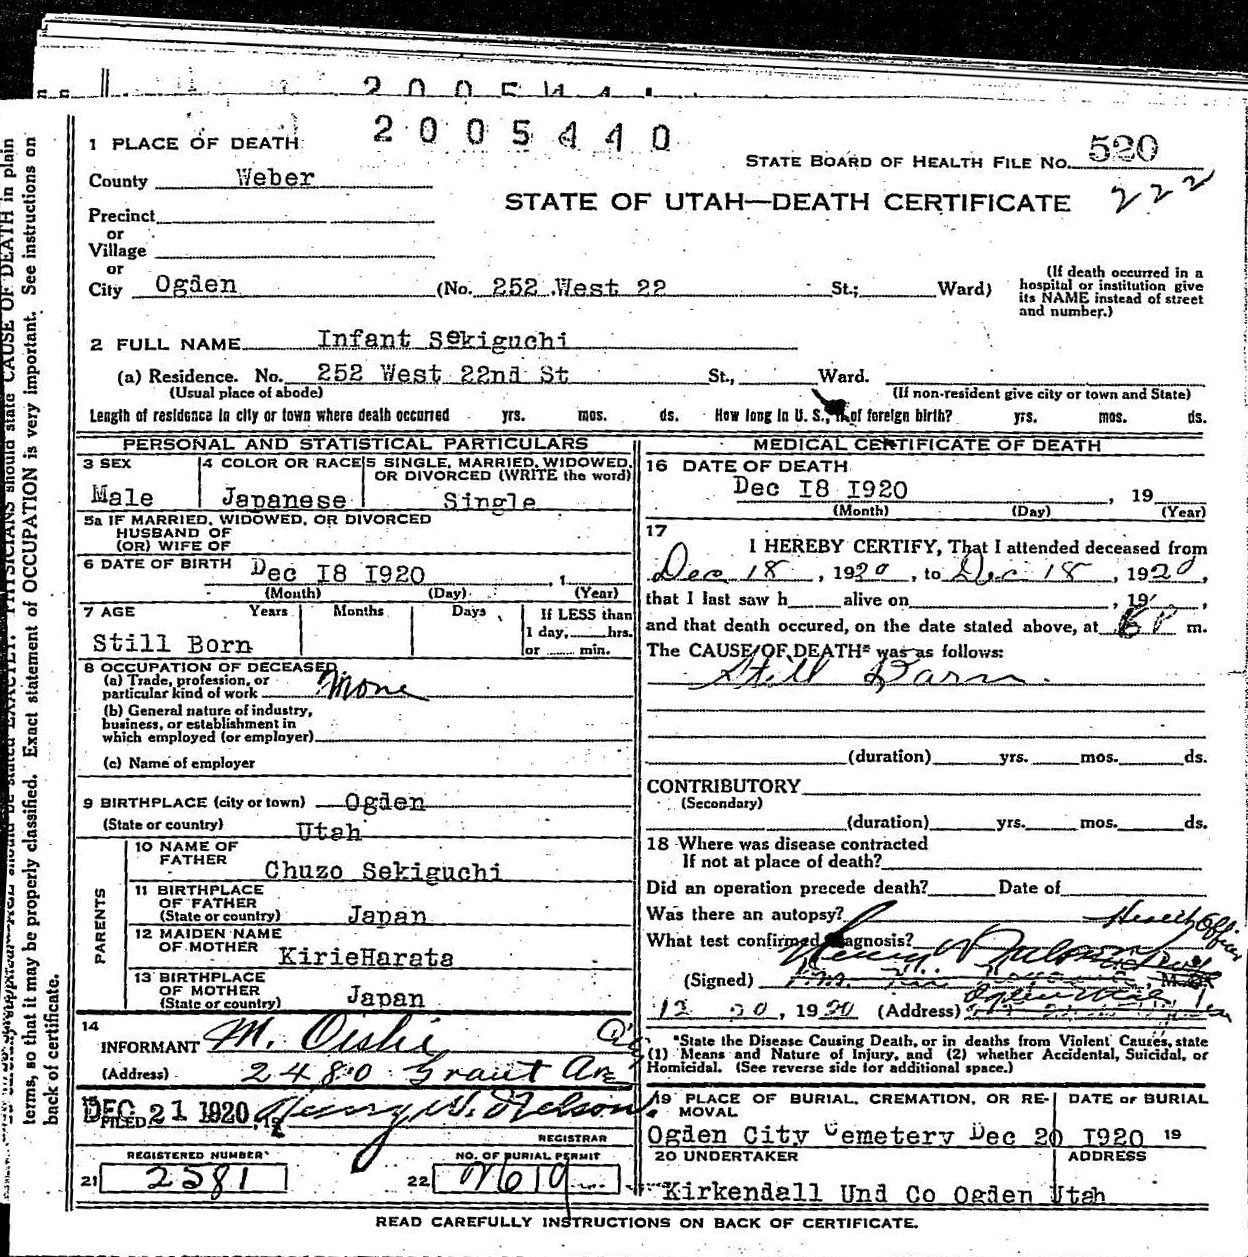 2005440
1 PLACE OF DEATH
STATE BOARD OF HEALTH FILE NO. 520
222
County Weber
STATE OF UTAH—DEATH CERTIFICATE
Precinct
or
Village
or
City Ogden (No. 252 West 22 St.; Ward)
(If death occurred in a hospital or institution give its NAME instead of street and number.)
2 FULL NAME Infant Sekiguchi
(a) Residence. No. 252 West 22nd St St., Ward.
(Usual place of abode) (If non-resident give city or town and State)
Length of residence in city or town where death occurred yrs. mos. ds. How long in U. S., if of foreign birth? yrs. mos. ds.
PERSONAL AND STATISTICAL PARTICULARS
3 SEX Male
4 COLOR OR RACE Japanese
5 SINGLE, MARRIED, WIDOWED, OR DIVORCED (WRITE the word) Single
5a IF MARRIED, WIDOWED, OR DIVORCED
HUSBAND OF
(OR) WIFE OF
6 DATE OF BIRTH Dec I8 I920
(Month) (Day) (Year)
7 AGE Years Months Days If LESS than
1 day, hrs.
or min.
Still Born
8 OCCUPATION OF DECEASED
(a) Trade, profession, or
particular kind of work None
(b) General nature of industry,
business, or establishment in
which employed (or employer)
(c) Name of employer
9 BIRTHPLACE (city or town) Ogden
(State or country) Utah
PARENTS
10 NAME OF FATHER
Chuzo Sekiguchi
11 BIRTHPLACE OF FATHER
(State or country) Japan
12 MAIDEN NAME OF MOTHER
KirieHarata
13 BIRTHPLACE OF MOTHER
(State or country) Japan
14 INFORMANT M. Oishi
(Address) 2480 Grant Ave
15 FILED DEC 21 1920, 19 Henry W. Nelson
REGISTRAR
REGISTERED NUMBER
21 2581
NO. OF BURIAL PERMIT
22
MEDICAL CERTIFICATE OF DEATH
16 DATE OF DEATH
Dec I8 I920, 19
(Month) (Day) (Year)
17
I HEREBY CERTIFY, That I attended deceased from
Dec 18, 1920, to Dec 18, 1920,
that I last saw h alive on , 19 ,
and that death occured, on the date stated above, at 6 P m.
The CAUSE OF DEATH* was as follows:
Still Born.
(duration) yrs. mos. ds.
CONTRIBUTORY
(Secondary)
(duration) yrs. mos. ds.
18 Where was disease contracted
If not at place of death?
Did an operation precede death? Date of
Was there an autopsy?
Health Officer
What test confirmed diagnosis?
Henry W Nelson
(Signed) M. D.
12 20, 1920 (Address) Ogden Utah
*State the Disease Causing Death, or in deaths from Violent Causes, state
(1) Means and Nature of Injury, and (2) whether Accidental, Suicidal, or
Homicidal. (See reverse side for additional space.)
19 PLACE OF BURIAL, CREMATION, OR RE-
MOVAL
DATE OF BURIAL
Ogden City Cemetery Dec 20 I920 19
20 UNDERTAKER ADDRESS
Kirkendall Und Co Ogden Utah
READ CAREFULLY INSTRUCTIONS ON BACK OF CERTIFICATE.
terms, so that it may be properly classified. Exact statement of OCCUPATION is very important. See instructions on
back of certificate.